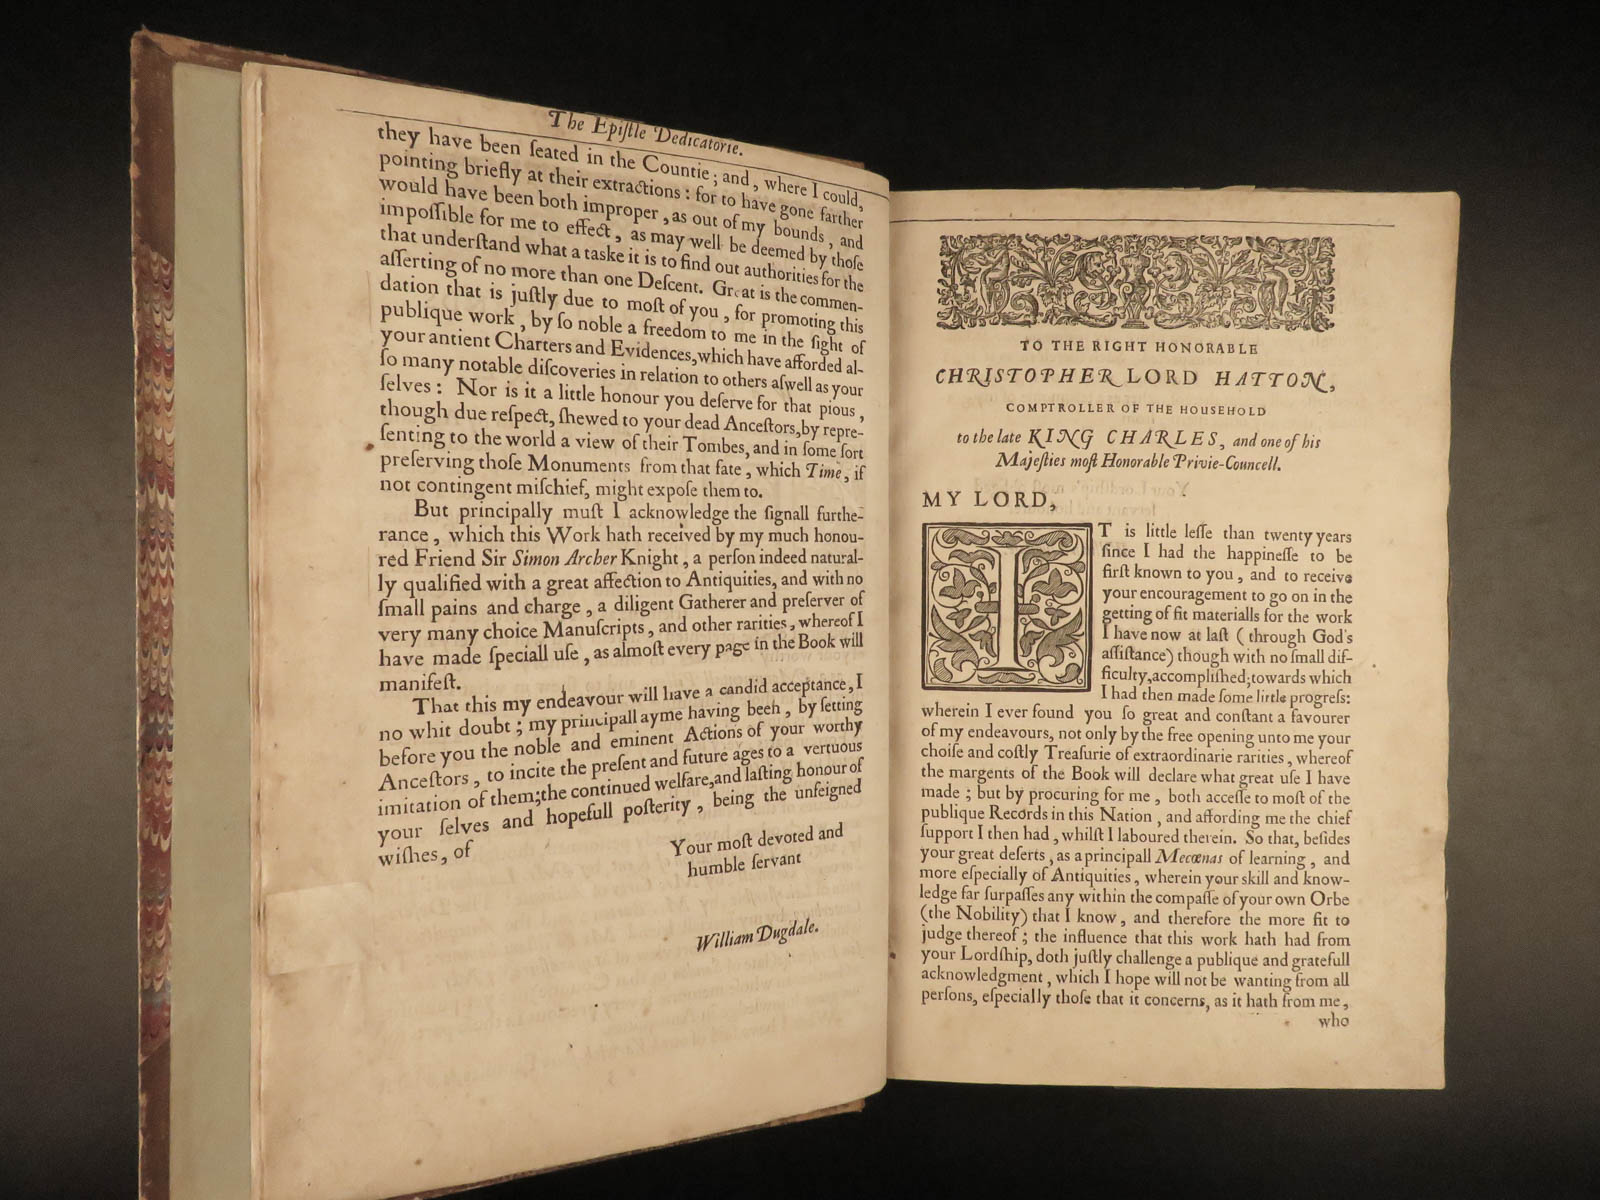 The Epiſtle Dedicatorie.
they have been ſeated in the Countie; and, where I could,
pointing briefly at their extractions: for to have gone farther
would have been both improper, as out of my bounds, and
impoſſible for me to effect, as may well be deemed by thoſe
that underſtand what a taske it is to find out authorities for the
aſſerting of no more than one Deſcent. Great is the commen-
dation that is juſtly due to moſt of you, for promoting this
publique work, by ſo noble a freedom to me in the ſight of
your antient Charters and Evidences, which have afforded al-
ſo many notable diſcoveries in relation to others aſwell as your
ſelves: Nor is it a little honour you deſerve for that pious,
though due reſpect, ſhewed to your dead Anceſtors, by repre-
ſenting to the world a view of their Tombes, and in ſome ſort
preſerving thoſe Monuments from that fate, which Time, if
not contingent miſchief, might expoſe them to.
But principally muſt I acknowledge the ſignall furthe-
rance, which this Work hath received by my much honou-
red Friend Sir Simon Archer Knight, a perſon indeed natural-
ly qualified with a great affection to Antiquities, and with no
ſmall pains and charge, a diligent Gatherer and preſerver of
very many choice Manuſcripts, and other rarities, whereof I
have made ſpeciall uſe, as almoſt every page in the Book will
manifeſt.
That this my endeavour will have a candid acceptance, I
no whit doubt; my principall ayme having beeh, by ſetting
before you the noble and eminent Actions of your worthy
Anceſtors, to incite the preſent and future ages to a vertuous
imitation of them; the continued welfare, and laſting honour of
your ſelves and hopefull poſterity, being the unfeigned
wiſhes, of
Your moſt devoted and
humble ſervant
William Dugdale.
TO THE RIGHT HONORABLE
CHRISTOPHER LORD HATTON,
COMPTROLLER OF THE HOUSEHOLD
to the late KING CHARLES, and one of his
Majeſties moſt Honorable Privie-Councell.
MY LORD,
IT is little leſſe than twenty years
ſince I had the happineſſe to be
firſt known to you, and to receive
your encouragement to go on in the
getting of fit materialls for the work
I have now at laſt (through God's
aſſiſtance) though with no ſmall dif-
ficulty, accompliſhed; towards which
I had then made ſome little progreſs:
wherein I ever found you ſo great and conſtant a favourer
of my endeavours, not only by the free opening unto me your
choiſe and coſtly Treaſurie of extraordinarie rarities, whereof
the margents of the Book will declare what great uſe I have
made; but by procuring for me, both acceſſe to moſt of the
publique Records in this Nation, and affording me the chief
ſupport I then had, whilſt I laboured therein. So that, beſides
your great deſerts, as a principall Mecœnas of learning, and
more eſpecially of Antiquities, wherein your skill and know-
ledge far ſurpaſſes any within the compaſſe of your own Orbe
(the Nobility) that I know, and therefore the more fit to
judge thereof; the influence that this work hath had from
your Lordſhip, doth juſtly challenge a publique and gratefull
acknowledgment, which I hope will not be wanting from all
perſons, eſpecially thoſe that it concerns, as it hath from me,
who